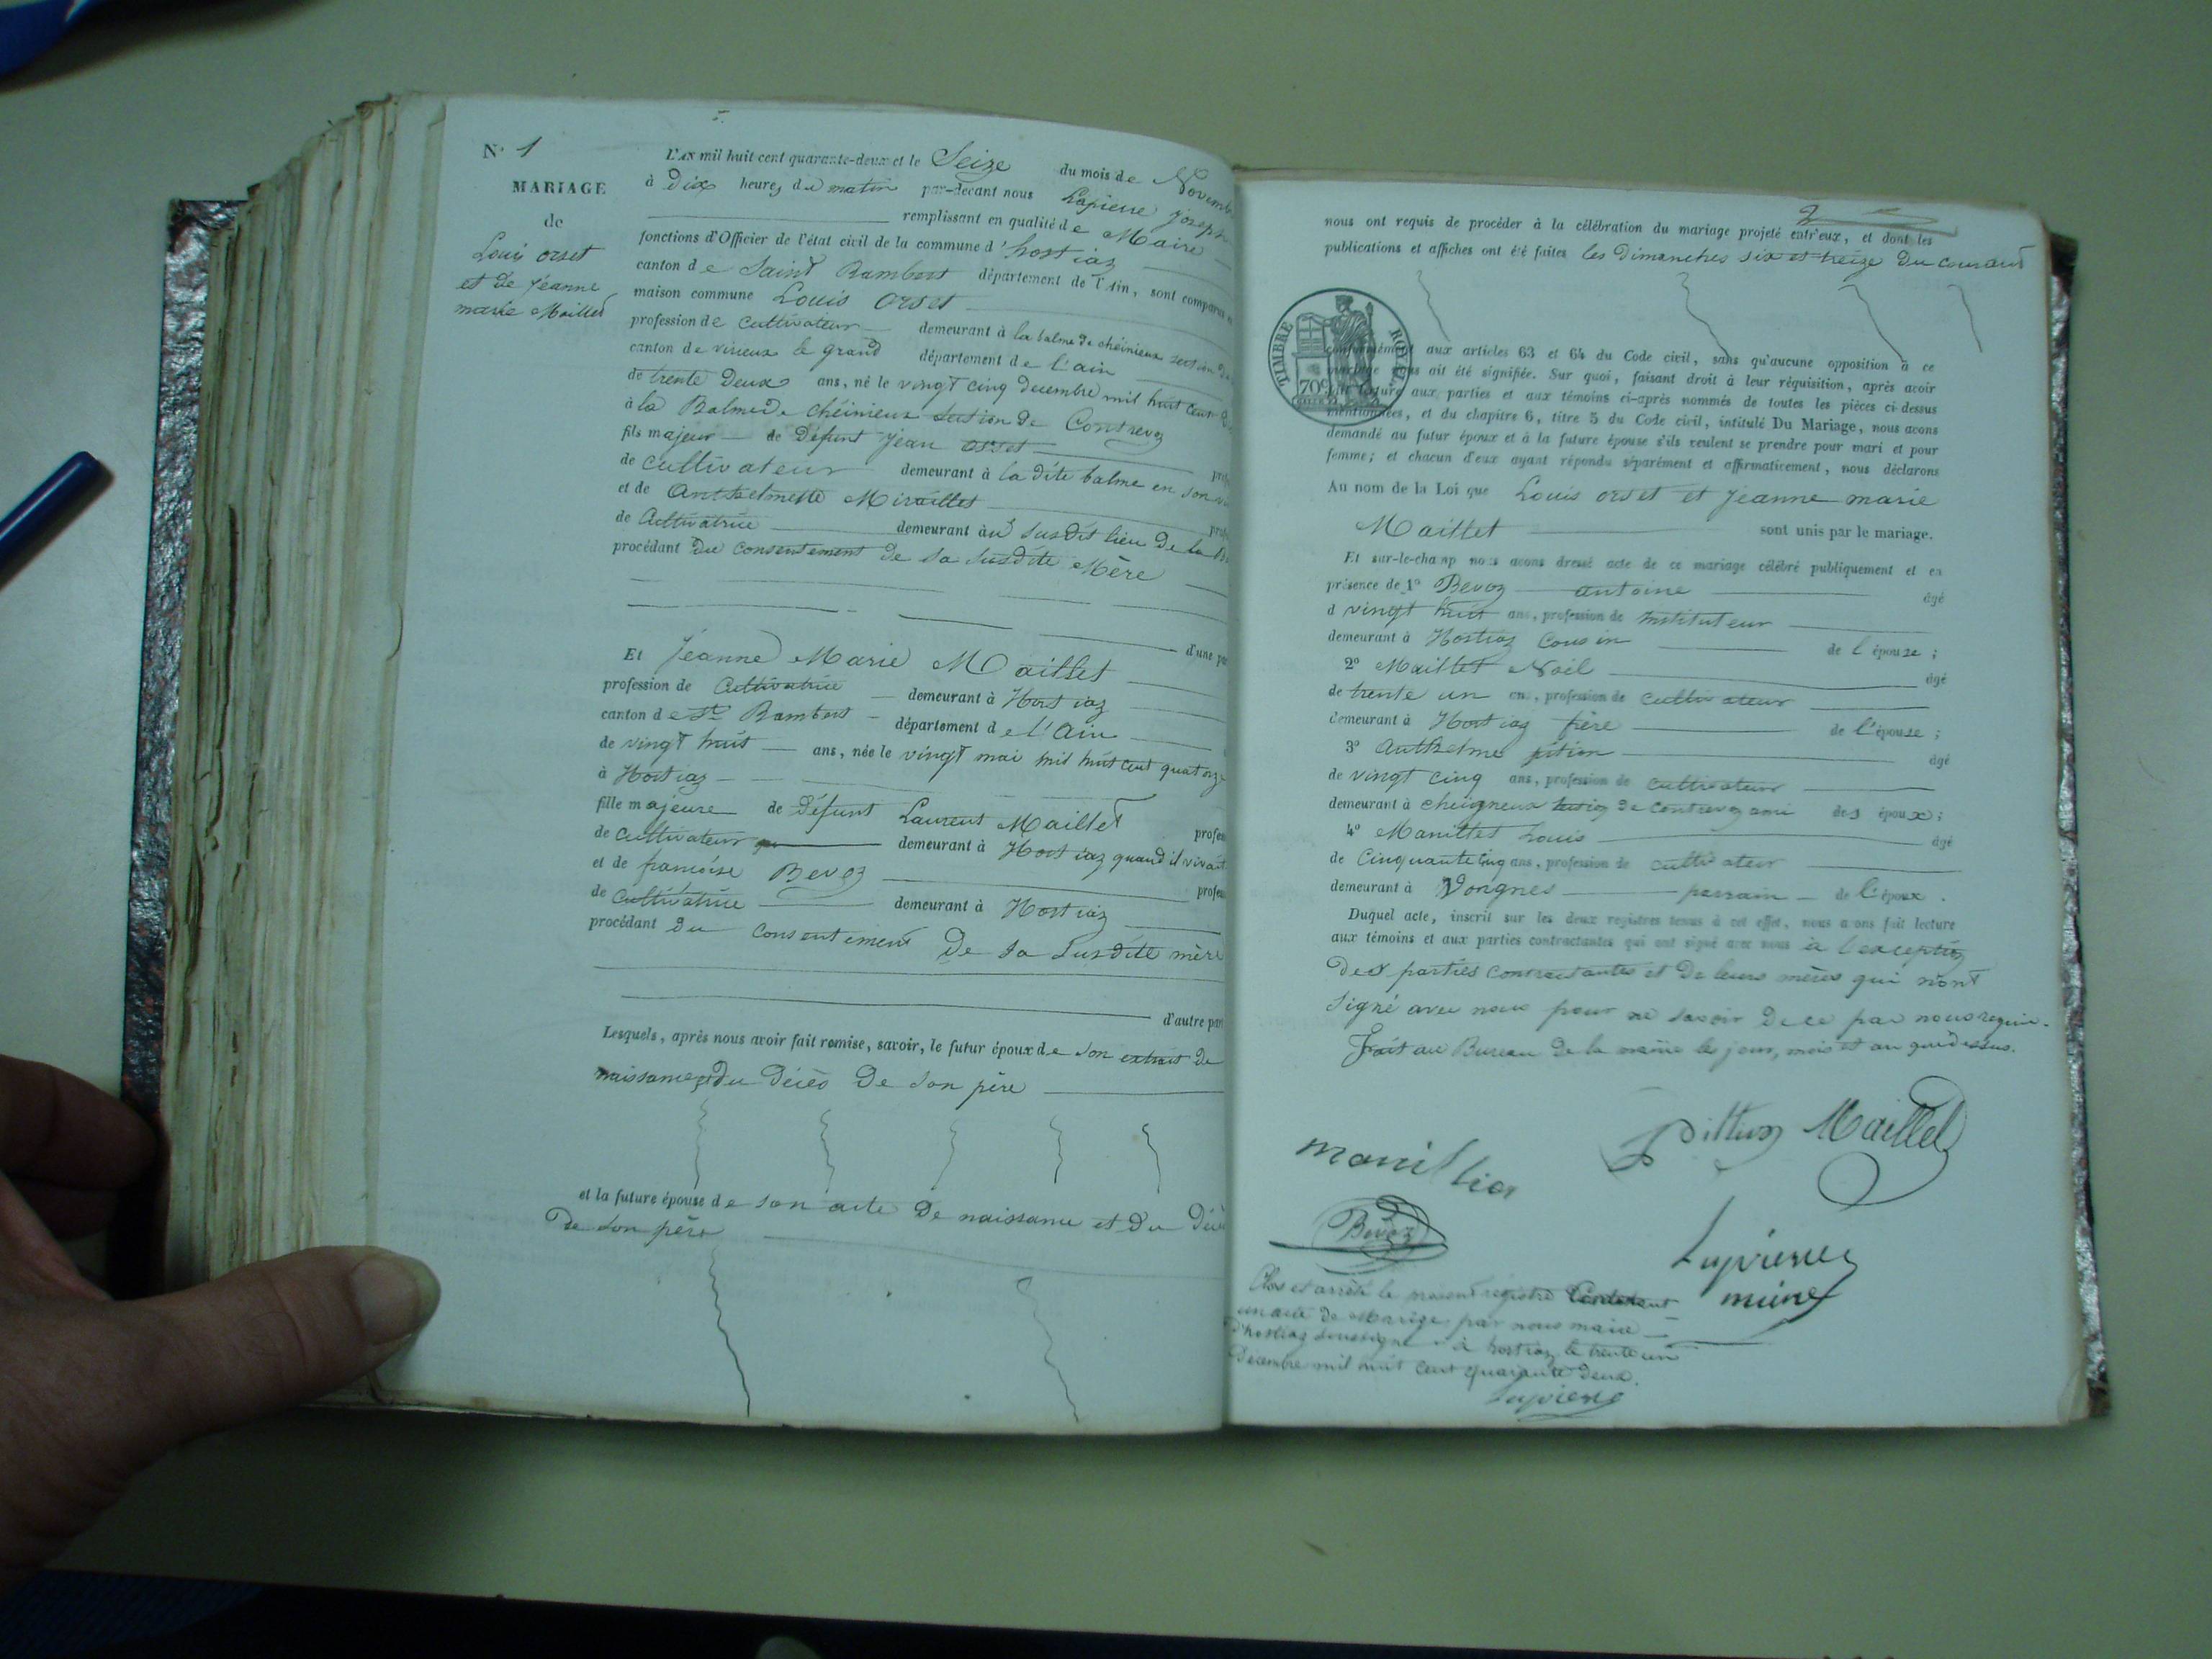 N° 1
MARIAGE
de
Louis orset
et de Jeanne
marie Maillet
L'AN mil huit cent quarante-deux et le Seize du mois de Novembre
à Dix heures du matin par-devant nous Lapierre Joseph
remplissant en qualité de Maire
fonctions d'Officier de l'état civil de la commune d'hostiaz
canton de Saint Rambert département de l'Ain, sont comparus en
maison commune Louis Orset
profession de cultivateur demeurant à la balme de cheinieux section de
canton de virieux le grand département de l'ain
de trente Deux ans, né le vingt cinq decembre mil huit cent
à la Balme de chéinieux section de Contrevoz
fils majeur de Défunt Jean orset
de cultivateur demeurant à la dite balme en son
et de Anthelmette Miraillet
de Cultivatrice demeurant au susdit lieu de la
procédant du consentement de sa susdite Mère
d'une par
Et Jeanne Marie Maillet
profession de Cultivatrice demeurant à Hostiaz
canton de St Rambert département de l'Ain
de vingt huit ans, née le vingt mai mil huit cent quatorze
à Hostiaz
fille majeure de Défunt Laurent Maillet profes
de cultivateur demeurant à Hostiaz quand il vivait
et de françoise Bevoz profes
de Cultivatrice demeurant à Hostiaz
procédant du consentement de sa susdite mère
d'autre part
Lesquels, après nous avoir fait remise, savoir, le futur époux de son extrait de
naissance et du décès de son père
et la future épouse de son acte de naissance et du décè
de son père
2
nous ont requis de procéder à la célébration du mariage projeté entr'eux, et dont les
publications et affiches ont été faites les Dimanches six et treize du courant
TIMBRE ROYAL
70c
conformément aux articles 63 et 64 du Code civil, sans qu'aucune opposition à ce
mariage nous ait été signifiée. Sur quoi, faisant droit à leur réquisition, après avoir
fait lecture aux parties et aux témoins ci-après nommés de toutes les pièces ci-dessus
mentionnées, et du chapitre 6, titre 5 du Code civil, intitulé Du Mariage, nous avons
demandé au futur époux et à la future épouse s'ils veulent se prendre pour mari et pour
femme; et chacun d'eux ayant répondu séparément et affirmativement, nous déclarons
Au nom de la Loi que Louis orset et Jeanne marie
Maillet sont unis par le mariage.
Et sur-le-champ nous avons dressé acte de ce mariage célébré publiquement et en
présence de 1° Bevoz antoine âgé
d vingt huit ans, profession de Instituteur
demeurant à Hostiaz Cousin de l'épouse;
2° Maillet Noël âgé
de trente un ans, profession de cultivateur
demeurant à Hostiaz frère de l'épouse;
3° Anthelme pition âgé
de vingt cinq ans, profession de cultivateur
demeurant à cheigneux section de Contrevoz ami des époux;
4° Manillet Louis âgé
de Cinquante cinq ans, profession de cultivateur
demeurant à Vongnes parrain de l'époux.
Duquel acte, inscrit sur les deux registres tenus à cet effet, nous avons fait lecture
aux témoins et aux parties contractantes qui ont signé avec nous à l'exception
Des parties contractantes et de leurs mères qui n'ont
signé avec nous pour ne savoir de ce par nous requis.
Fait au Bureau de la mairie les jour, mois et an que dessus.
Maillet
Bevoz
Lapierre
maire
Clos et arrêté le présent registre
un acte de Mariage, par nous maire
d'hostiaz soussigné à hostiaz le trente un
Décembre mil huit cent quarante deux.
Lapierre